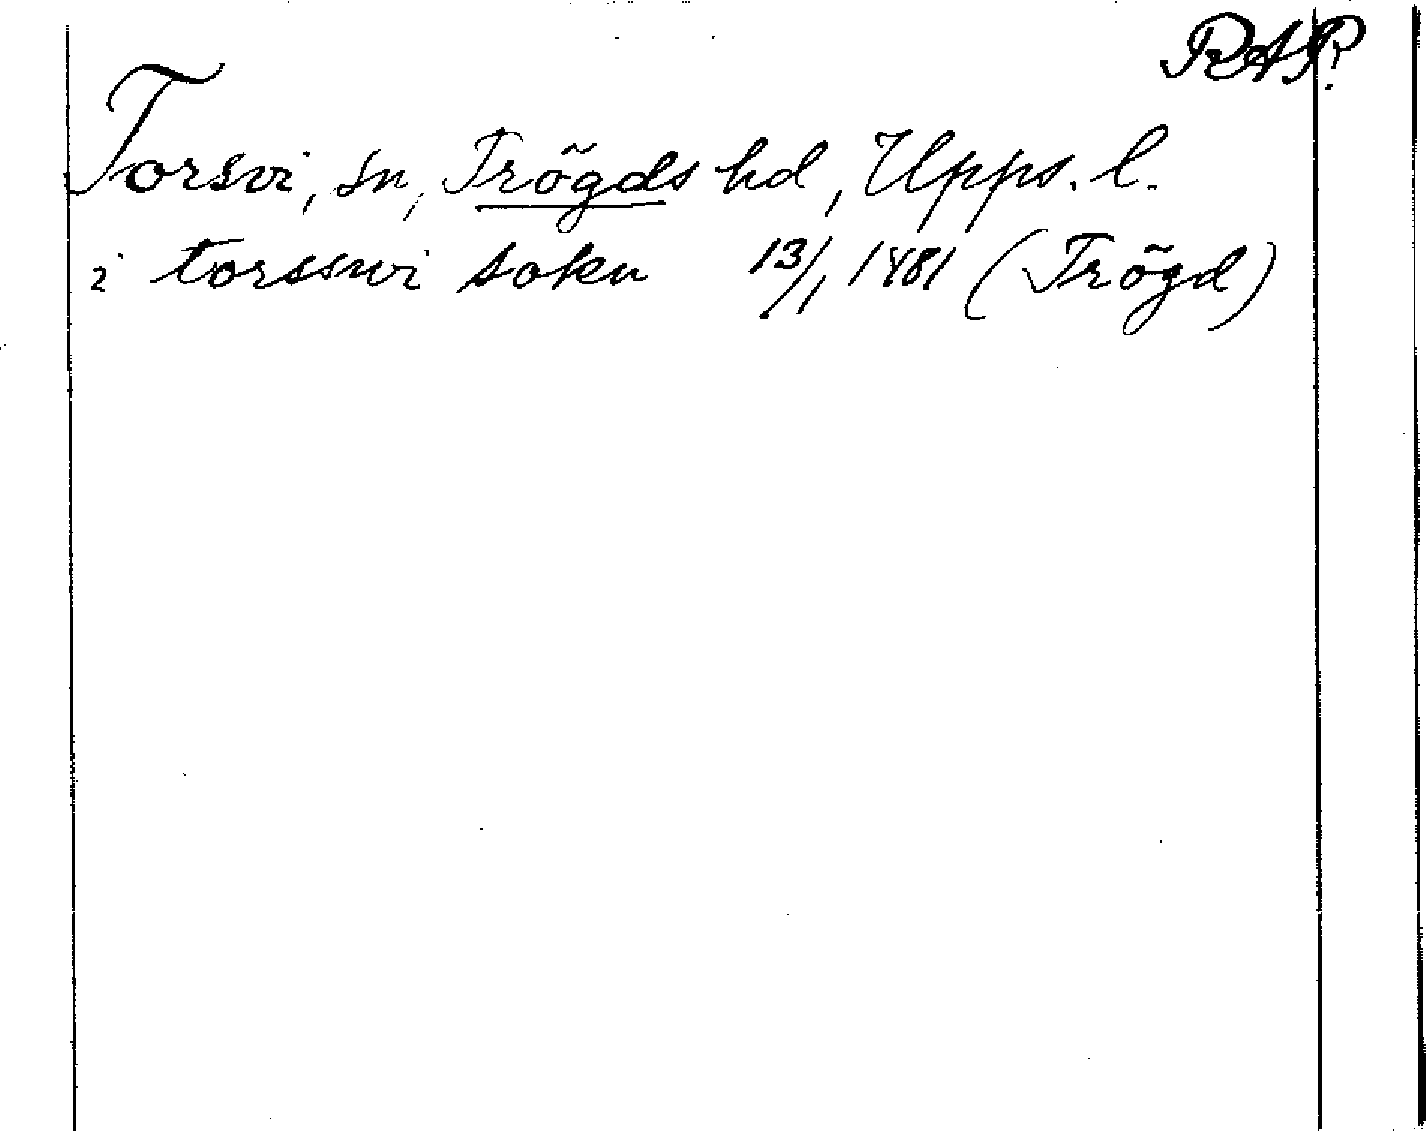 RAP.
Torsvi, sn, Trögds hd, Upps. l.
i torsswi sokn 13/1 1481 (Trögd)